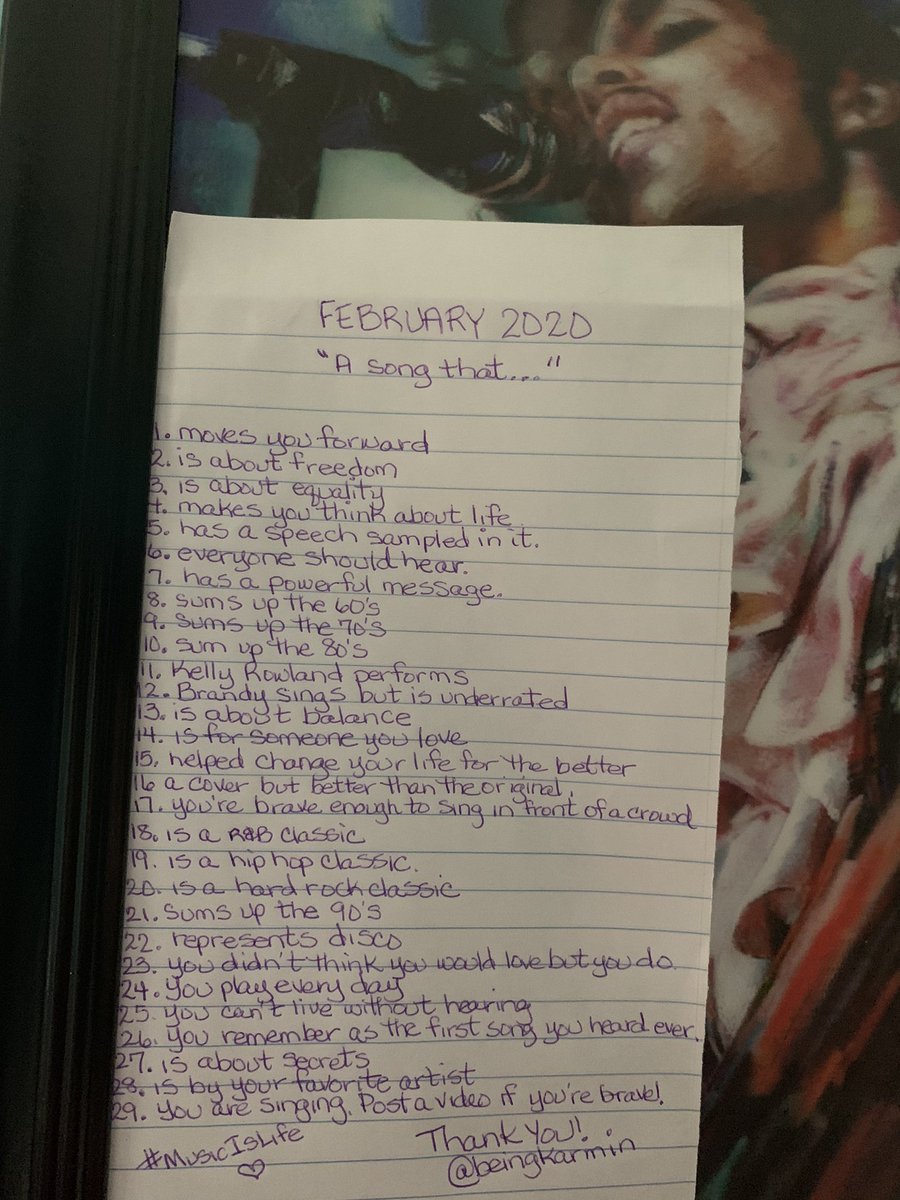 FEBRUARY 2020
"A song that...."
1. moves you forward
2. is about freedom
3. is about equality
4. makes you think about life
5. has a speech sampled in it.
6. everyone should hear.
7. has a powerful message.
8. sums up the 60's
9. sums up the 70's
10. sum up the 80's
11. Kelly Rowland performs
12. Brandy sings but is underrated
13. is about balance
14. is for someone you love
15. helped change your life for the better
16 a cover but better than the original.
17. you're brave enough to sing in front of a crowd
18. is a R&B classic
19. is a hip hop classic.
20. is a hard rock classic
21. sums up the 90's
22. represents disco
23. you didn't think you would love but you do.
24. you play every day
25. you can't live without hearing
26. you remember as the first song you heard ever.
27. is about secrets
28. is by your favorite artist
29. you are singing. Post a video if you're brave!
#MusicIsLife
Thank You!
@beingkarmin